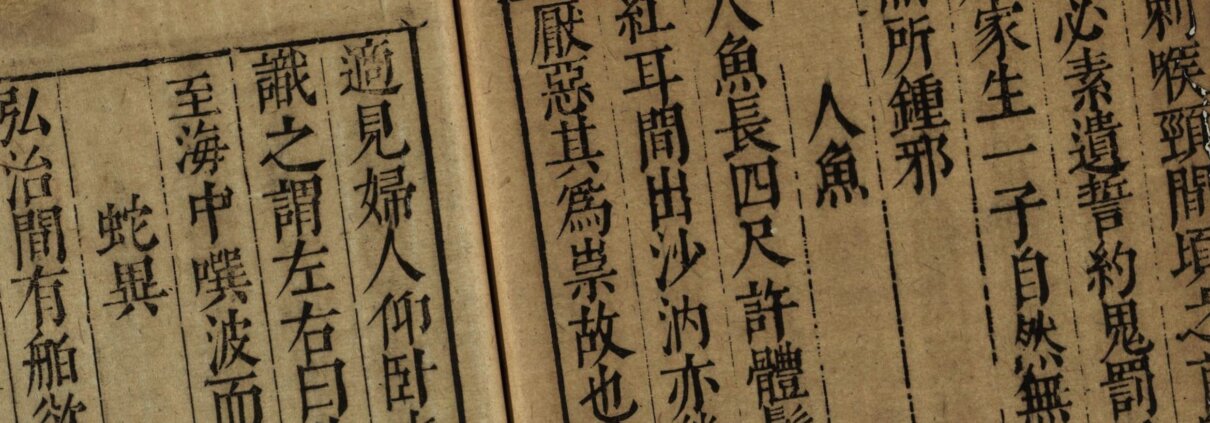 刺喉頸間頃之
必素遺誓約鬼罰
家生一子自然無
所鍾邪
人魚
人魚長四尺許體
紅耳間出沙汭亦
厭惡其為祟故也
適見婦人仰臥
識之謂左右曰
至海中噀波而
蛇異
弘治間有舶欲